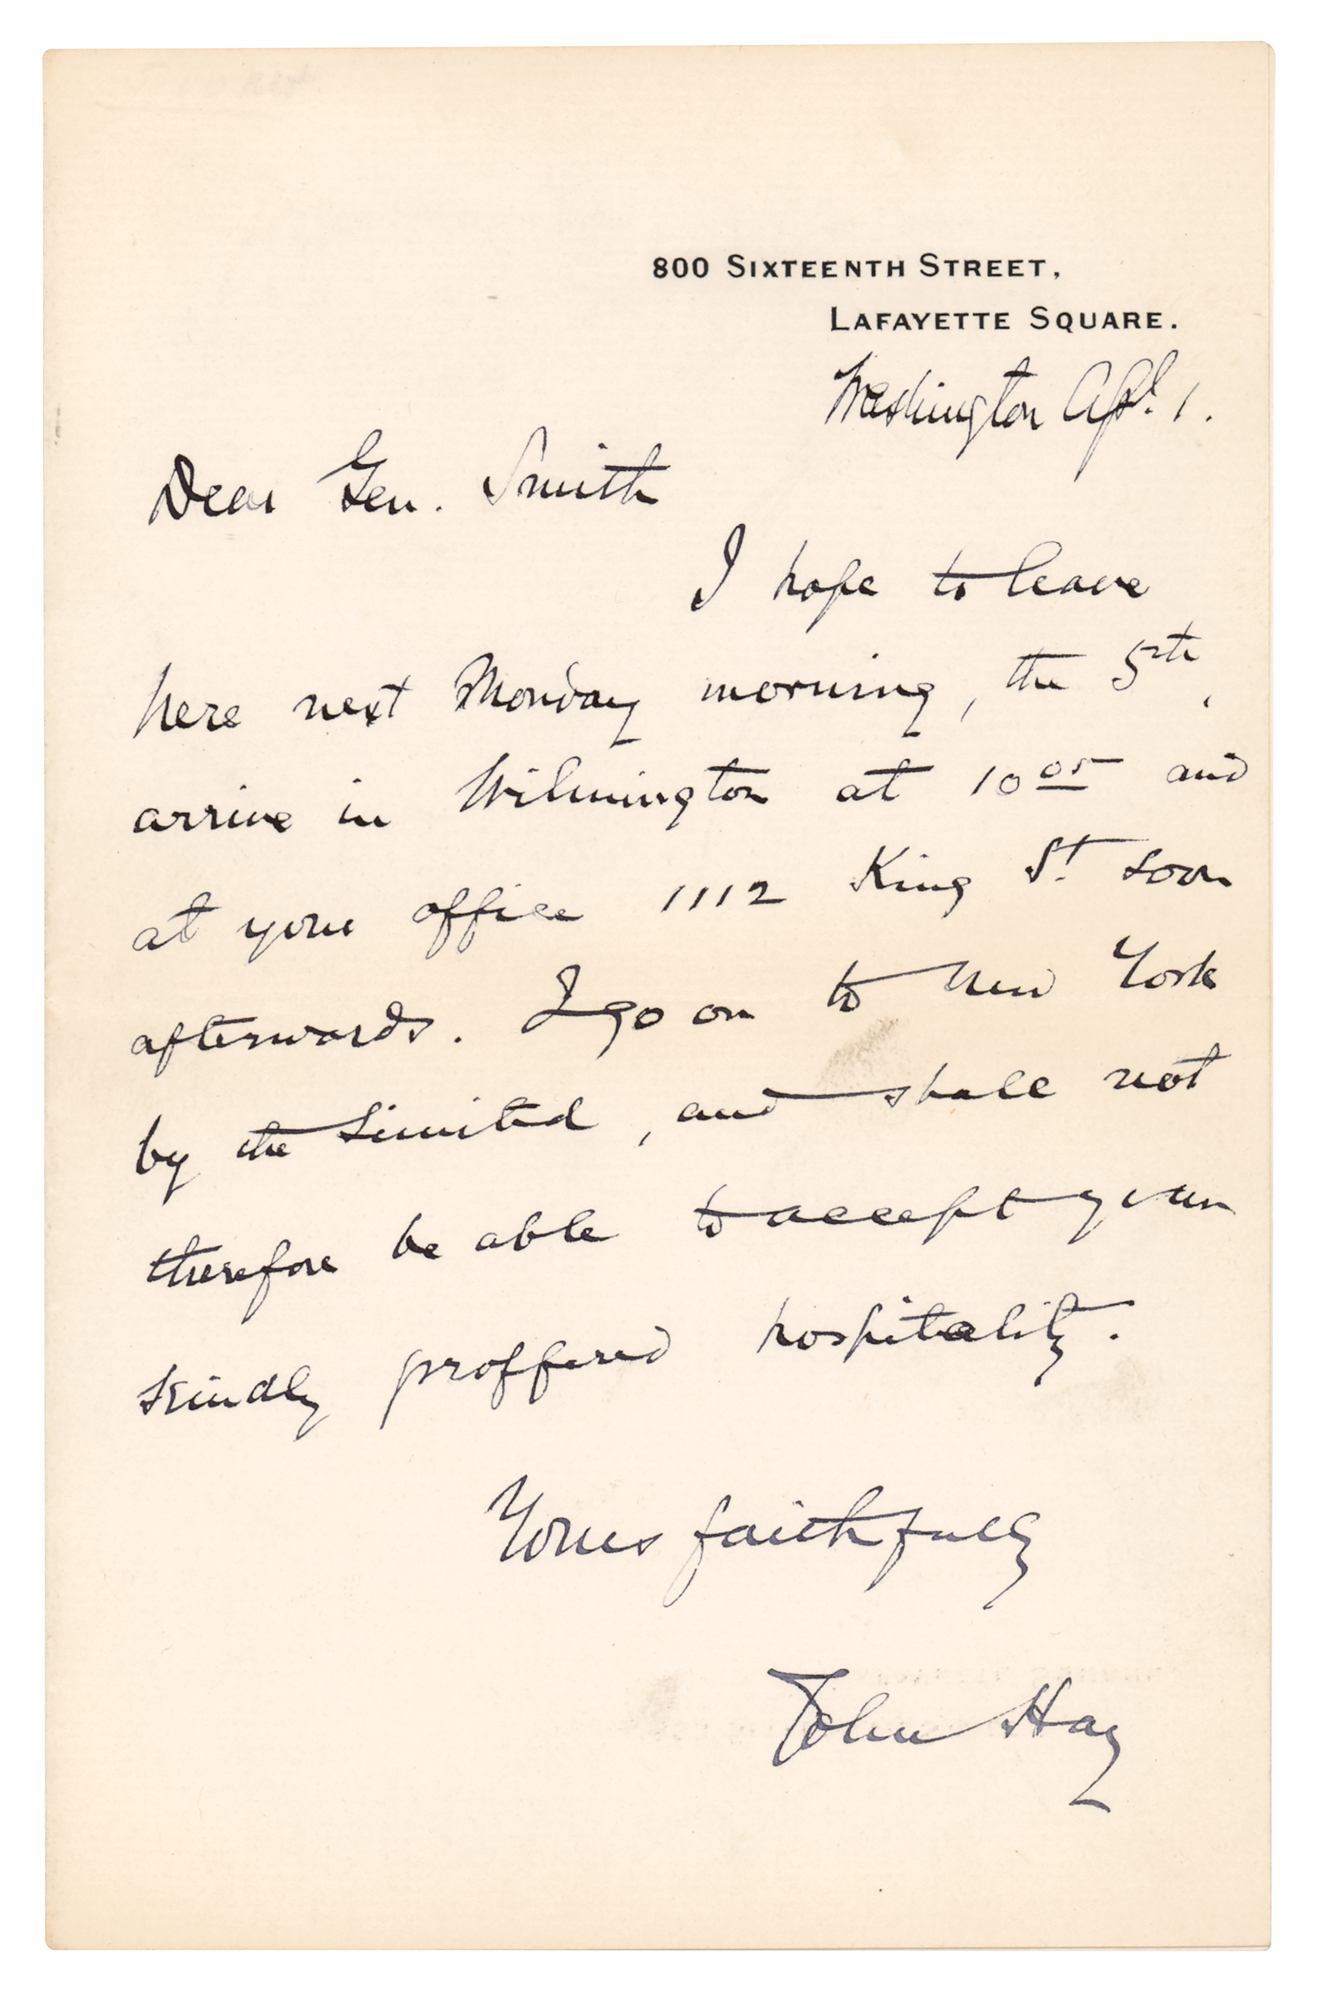 800 SIXTEENTH STREET,
LAFAYETTE SQUARE.
Washington Apl. 1.
Dear Gen. Smith
I hope to leave
here next Monday morning, the 5th,
arrive in Wilmington at 10 05 and
at your office 1112 King St. soon
afterwards. I go on to New York
by the Limited, and shall not
therefore be able to accept your
kindly proffered hospitality.
Yours faithfully
John Hay